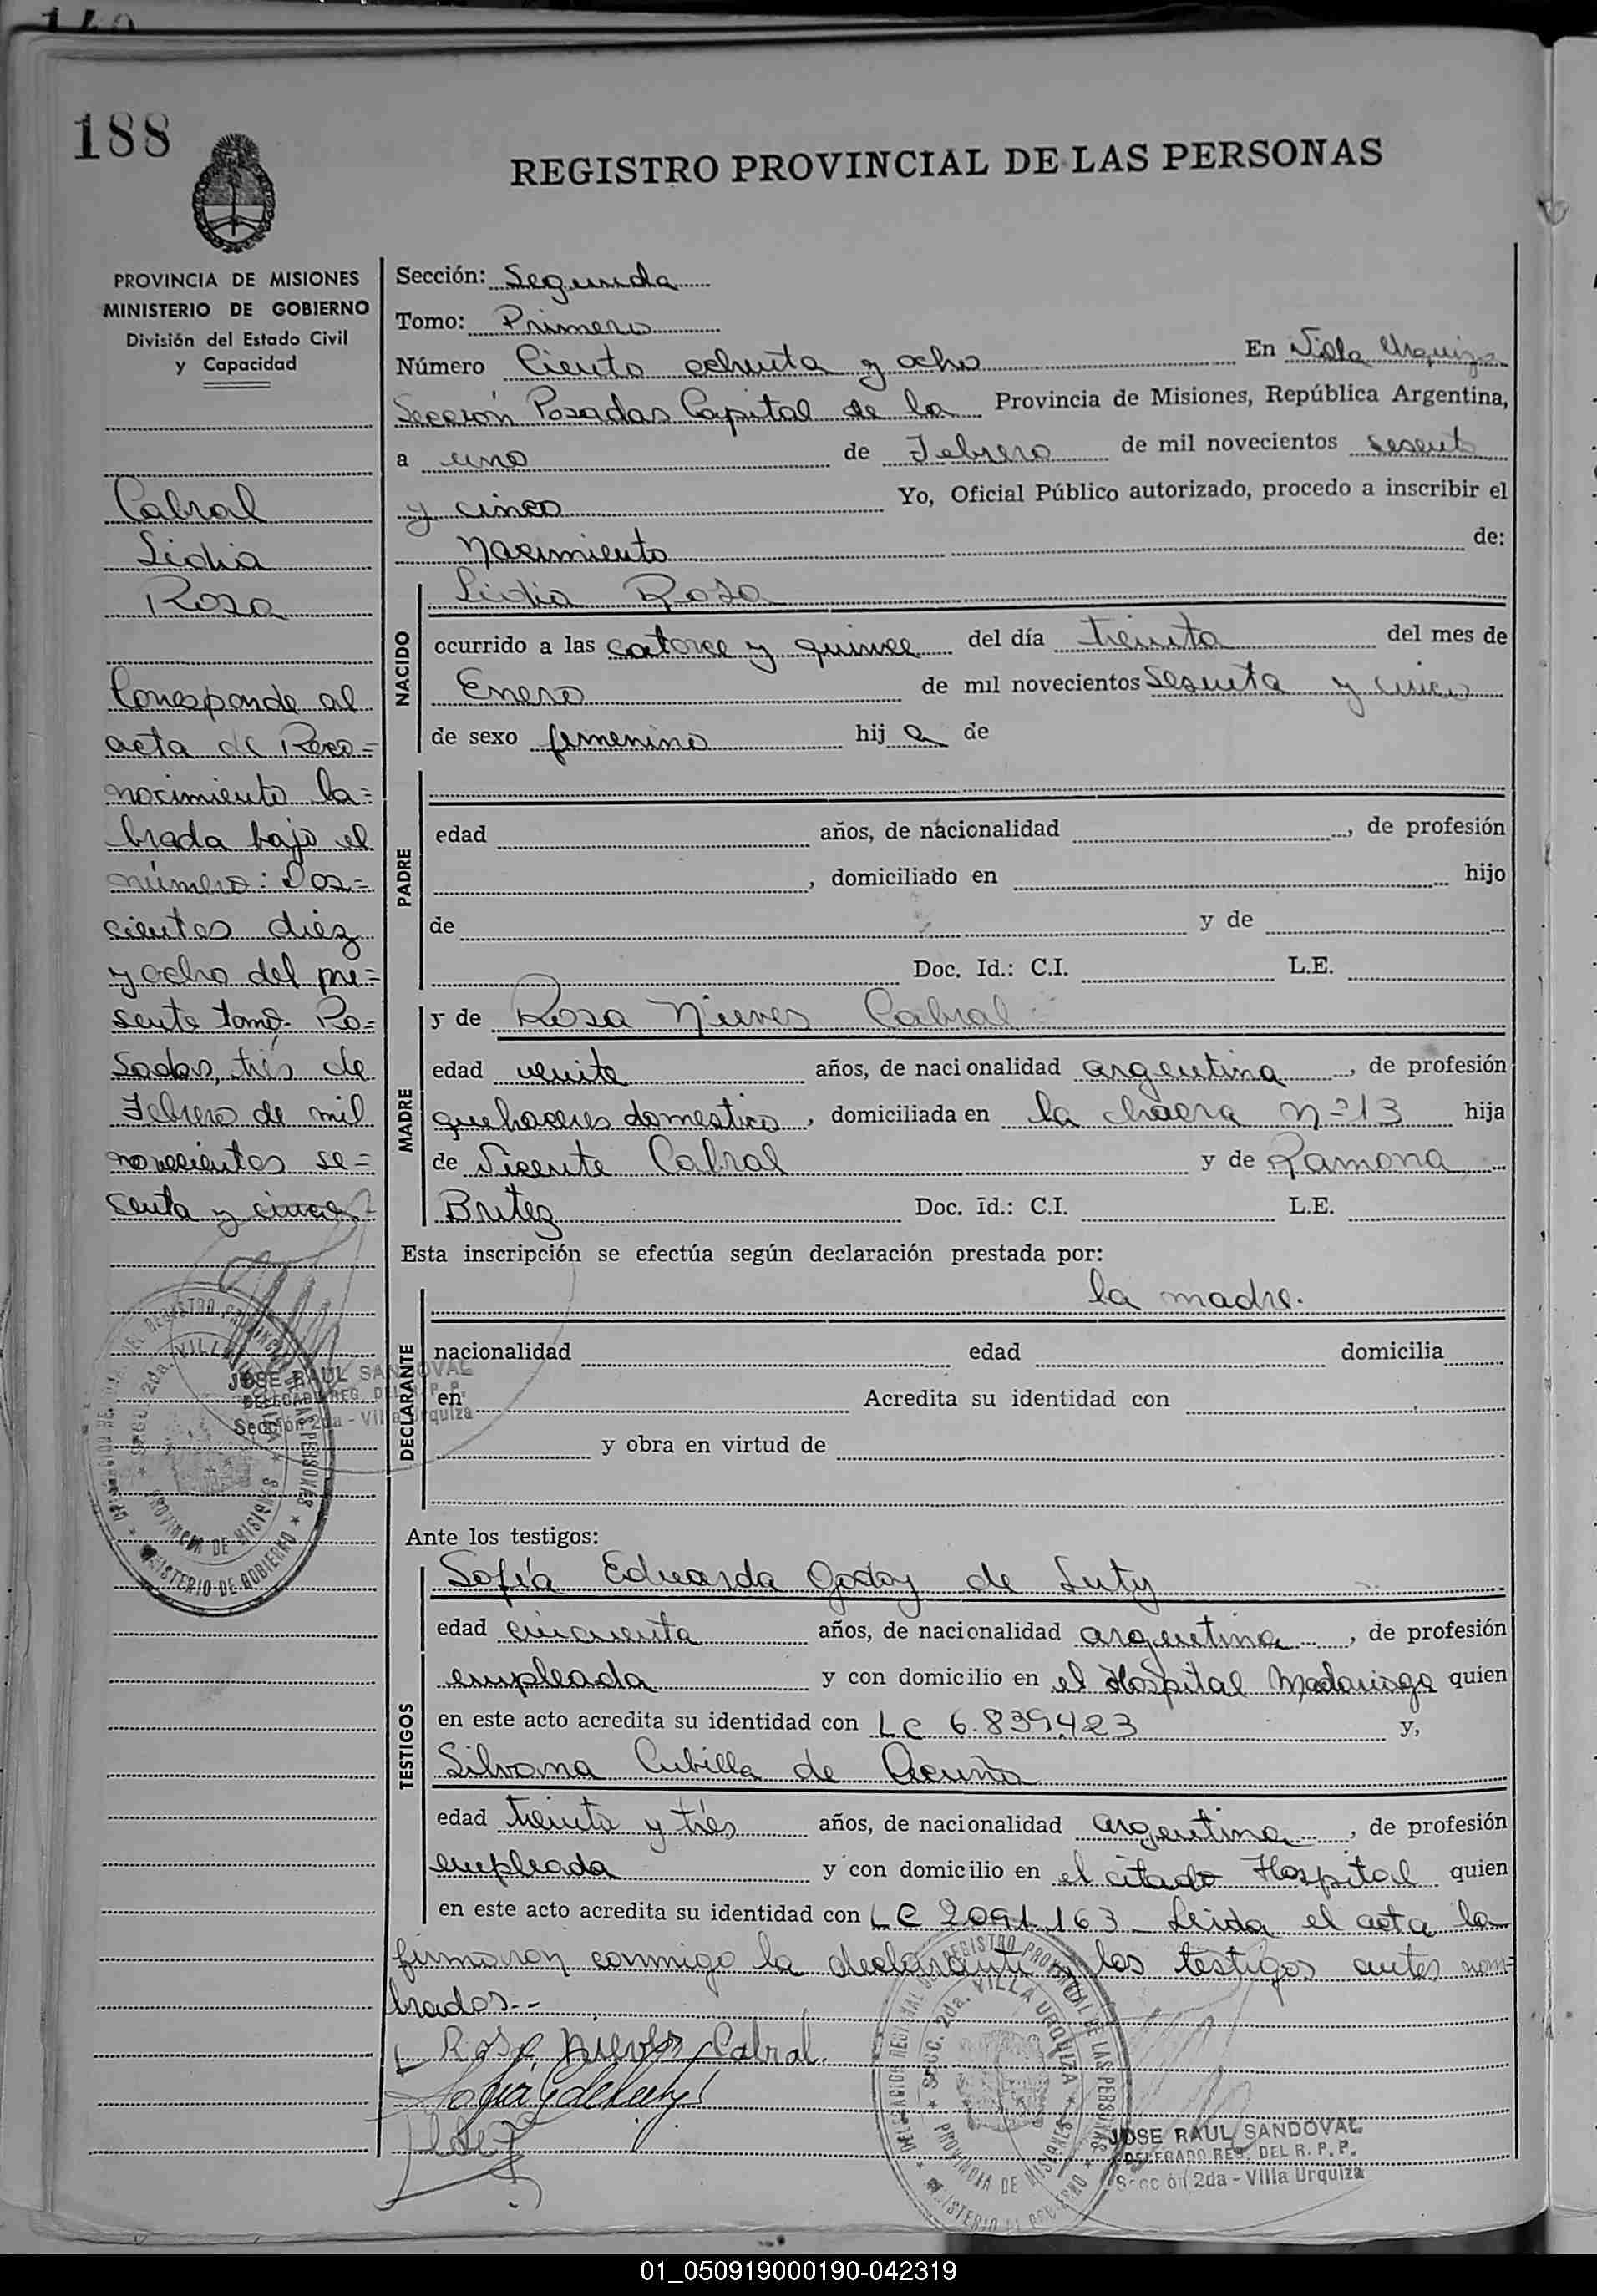 188
REGISTRO PROVINCIAL DE LAS PERSONAS
PROVINCIA DE MISIONES
MINISTERIO DE GOBIERNO
División del Estado Civil
y Capacidad
Cabral
Lidia
Rosa
Corresponde al
acta de Reco=
nocimiento la=
brada bajo el
número: Dos=
cientos diez
y ocho del pre=
sente tomo. Po=
sadas, trés de
Febrero de mil
novecientos se=
senta y cinco
JOSE RAUL SANDOVAL
DELEGADO REG. DEL R. P. P.
Sección 2da - Villa Urquiza
Sección: Segunda
Tomo: Primero
Número Ciento ochenta y ocho En Villa Urquiza
Sección Posadas Capital de la Provincia de Misiones, República Argentina,
a uno de Febrero de mil novecientos sesenta
y cinco Yo, Oficial Público autorizado, procedo a inscribir el
nacimiento de:
NACIDO
Lidia Rosa
ocurrido a las catorce y quince del día treinta del mes de
Enero de mil novecientos sesenta y cinco
de sexo femenino hija de
PADRE
edad años, de nacionalidad , de profesión
, domiciliado en hijo
de y de
Doc. Id.: C.I. L.E.
MADRE
y de Rosa Nieves Cabral
edad veinte años, de nacionalidad argentina, de profesión
quehaceres domestico, domiciliada en la chacra Nº 13 hija
de Vicente Cabral y de Ramona
Britez Doc. Id.: C.I. L.E.
Esta inscripción se efectúa según declaración prestada por:
DECLARANTE
la madre.
nacionalidad edad domicilia
en Acredita su identidad con
y obra en virtud de
Ante los testigos:
TESTIGOS
Sofía Eduarda Godoy de Luty
edad cincuenta años, de nacionalidad argentina, de profesión
empleada y con domicilio en el Hospital Madariaga quien
en este acto acredita su identidad con LC 6.839.423 y,
Silvana Cubilla de Acuña
edad treinta y trés años, de nacionalidad argentina, de profesión
empleada y con domicilio en el citado Hospital quien
en este acto acredita su identidad con LC 2091.163_ Leida el acta la
firmaron conmigo la declarante y los testigos antes nom=
brados.--
Rosa Nieves Cabral.
DELEGACION REGIONAL DEL REGISTRO PROVINCIAL DE LAS PERSONAS
SECC. 2da. VILLA URQUIZA
PROVINCIA DE MISIONES
MINISTERIO DE GOBIERNO
JOSE RAUL SANDOVAL
DELEGADO REG. DEL R. P. P.
Sección 2da - Villa Urquiza
01_050919000190-042319